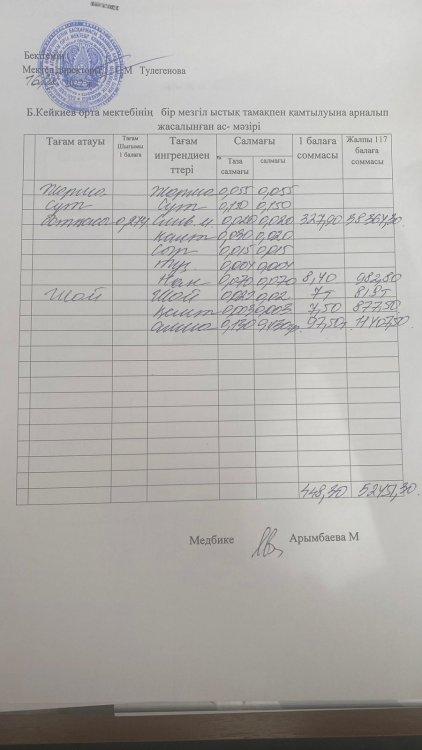 Бекітемін
Мектеп директоры Г М Тулегенова
Б.Кейкиев орта мектебінің бір мезгіл ыстық тамақпен қамтылуына арналып
жасалынған ас- мәзірі
Тағам атауы Тағам Шығымы 1 балаға Тағам ингрендиент тері Салмағы 1 балаға соммасы Жалпы 117 балаға соммасы
Таза салмағы салмағы
Жарма Жарма 0,055 0,055
Сүт Сүт 0,150 0,150
0,274 0,020 0,020 327,90 38364,30
Қант 0,030 0,020
0,015 0,015
Тұз 0,004 0,004
Нан 0,070 0,070 8,40 982,80
Шай Шай 0,02 7т 819т
Қант 0,003 7,50 877,50
алма 0,130 97,50 11407,50
448,30 52451,30
Медбике Арымбаева М